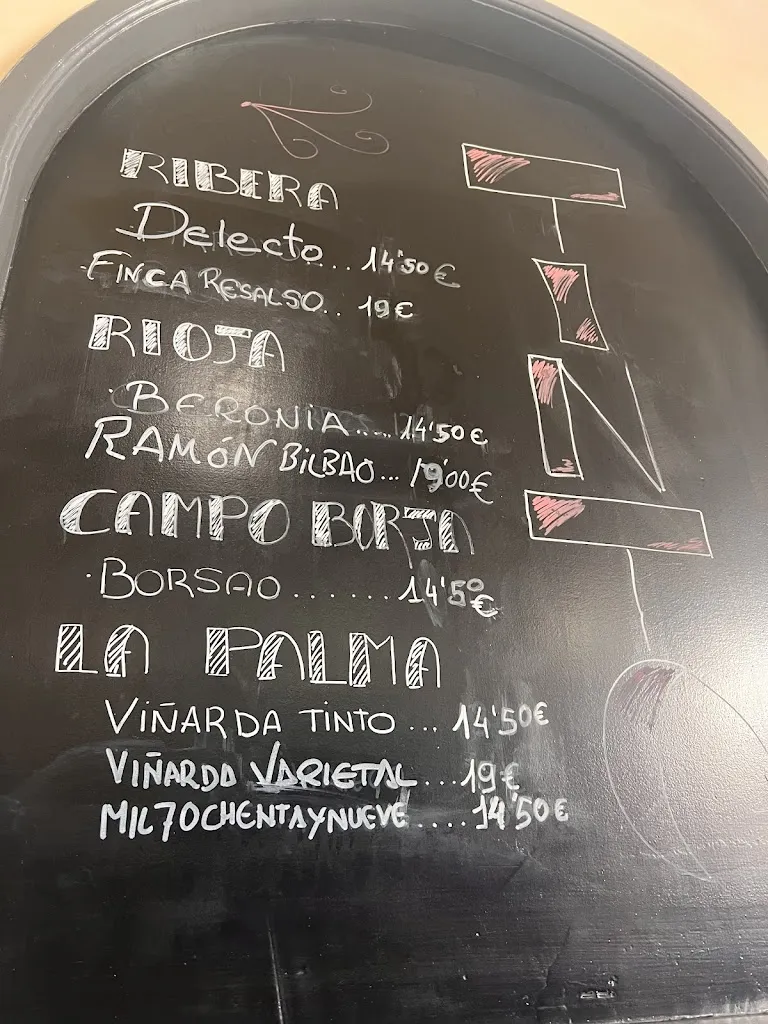 RIBERA
Delecto... 14'50€
FINCA RESALSO.. 19€
RIOJA
·BERONIA.... 14'50€
RAMÓN BILBAO... 19'00€
CAMPO BORJA
·BORSAO....... 14'50€
LA PALMA
VIÑARDA TINTO... 14'50€
VIÑARDA VARIETAL...19€
MIL7OCHENTAYNUEVE.... 14'50€
TINTO